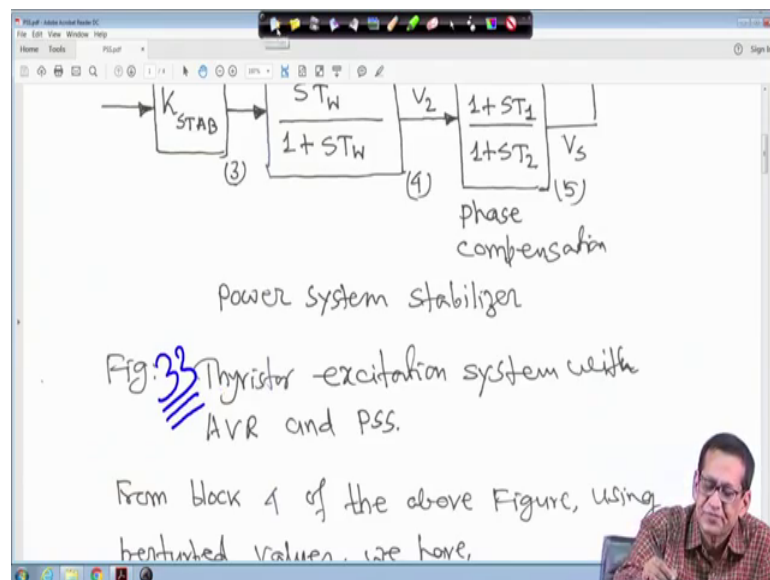 PSS.pdf - Adobe Acrobat Reader DC
File Edit View Window Help
Home Tools PSS.pdf × Sign In
K STAB
(3)
STW
1+STW
V2
(4)
1+ST1
1+ST2
VS
(5)
phase
compensation
power system stabilizer
Fig: 33 Thyristor excitation system with
AVR and PSS.
From block 4 of the above Figure, using
perturbed values, we have,